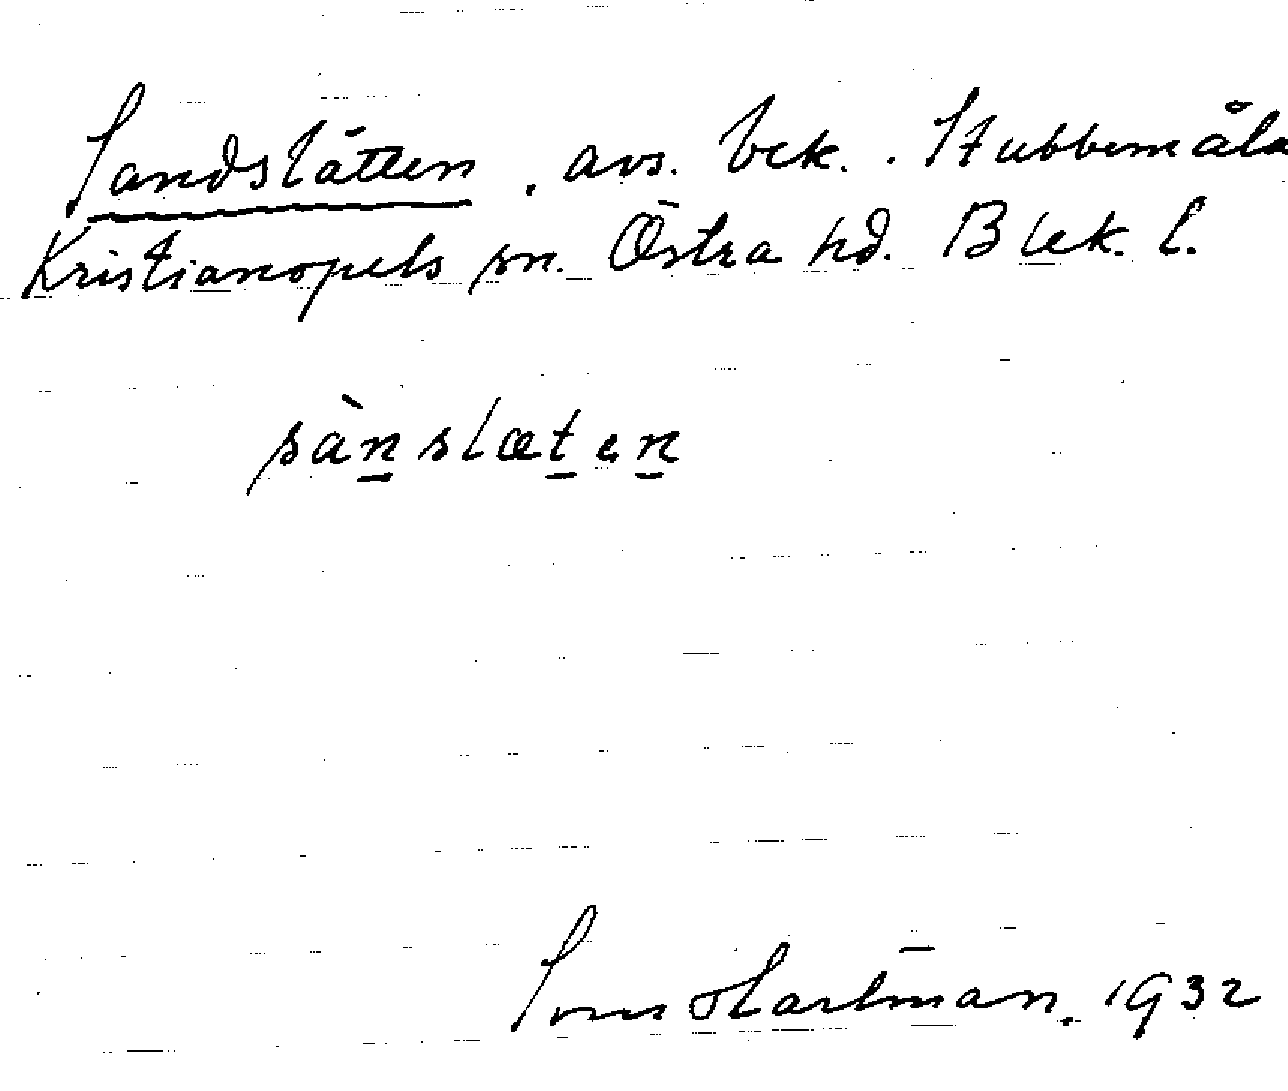 Sandslätten, avs. bek. Stubbemåla
Kristianopels sn. Östra hd. Blek. l.
sànslæten
Sven Hartman. 1932